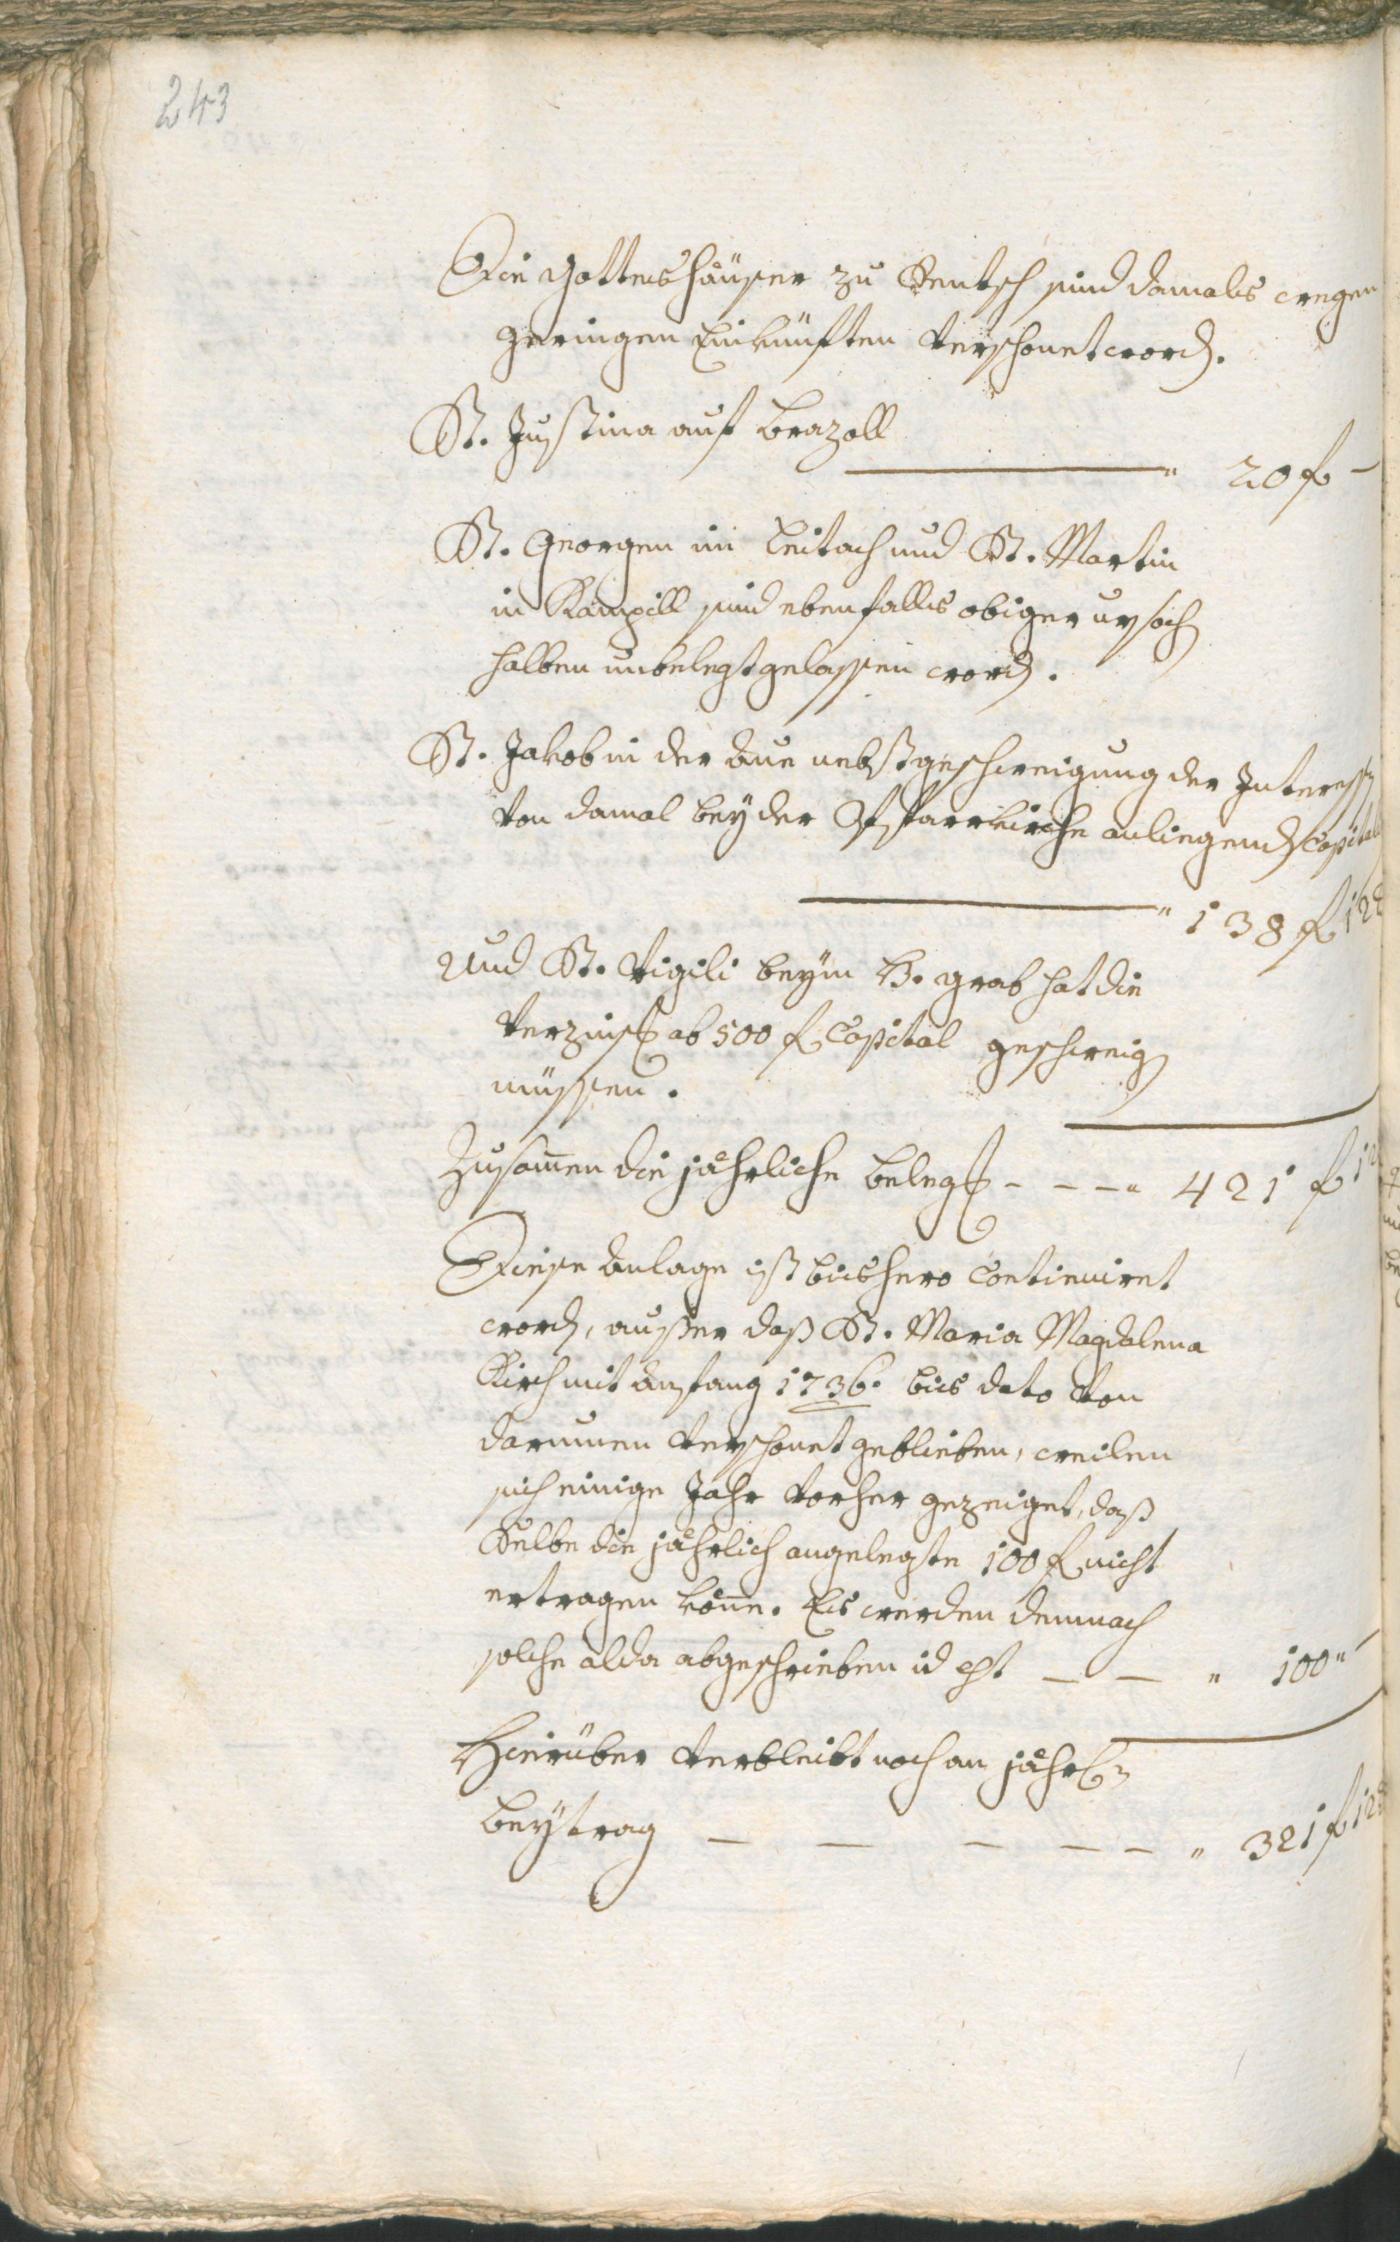 243
Die Gotteshäuser zu Sentsch sind damals wegen
geringen Einkünften verschont word.
St. Justina auf Brazoll
" 20 f —
St. Georgen im Leitach und St. Martin
in Kampill sind ebenfalls obiger ursach
halben unbelegt gelassen word.
St. Jakob in der Aue nebst geschweigung der Interesse
von damal bey der Pfarrkirche anliegend Capital
" 138 f 12
Und St. Vigili beym H. Grab hat die
Verzinß ab 500 f Capital geschweig
müssen.
Zusamen die jährliche Beleg — — — " 421 f 12
Diese Anlage ist bishero Continuiret
word, außer daß St. Maria Magdalena
Kirch mit Anfang 1736. bis dato von
darumen verschont geblieben, weilen
sich einige Jahr vorher gezeiget, daß
Selbe die jährlich angelegte 100 f nicht
ertragen köne. Es werden demnach
solche alda abgeschrieben id est — — " 100 "
Hierüber verbleibt noch an jährl.
Beytrag — — — — — " 321 f 12